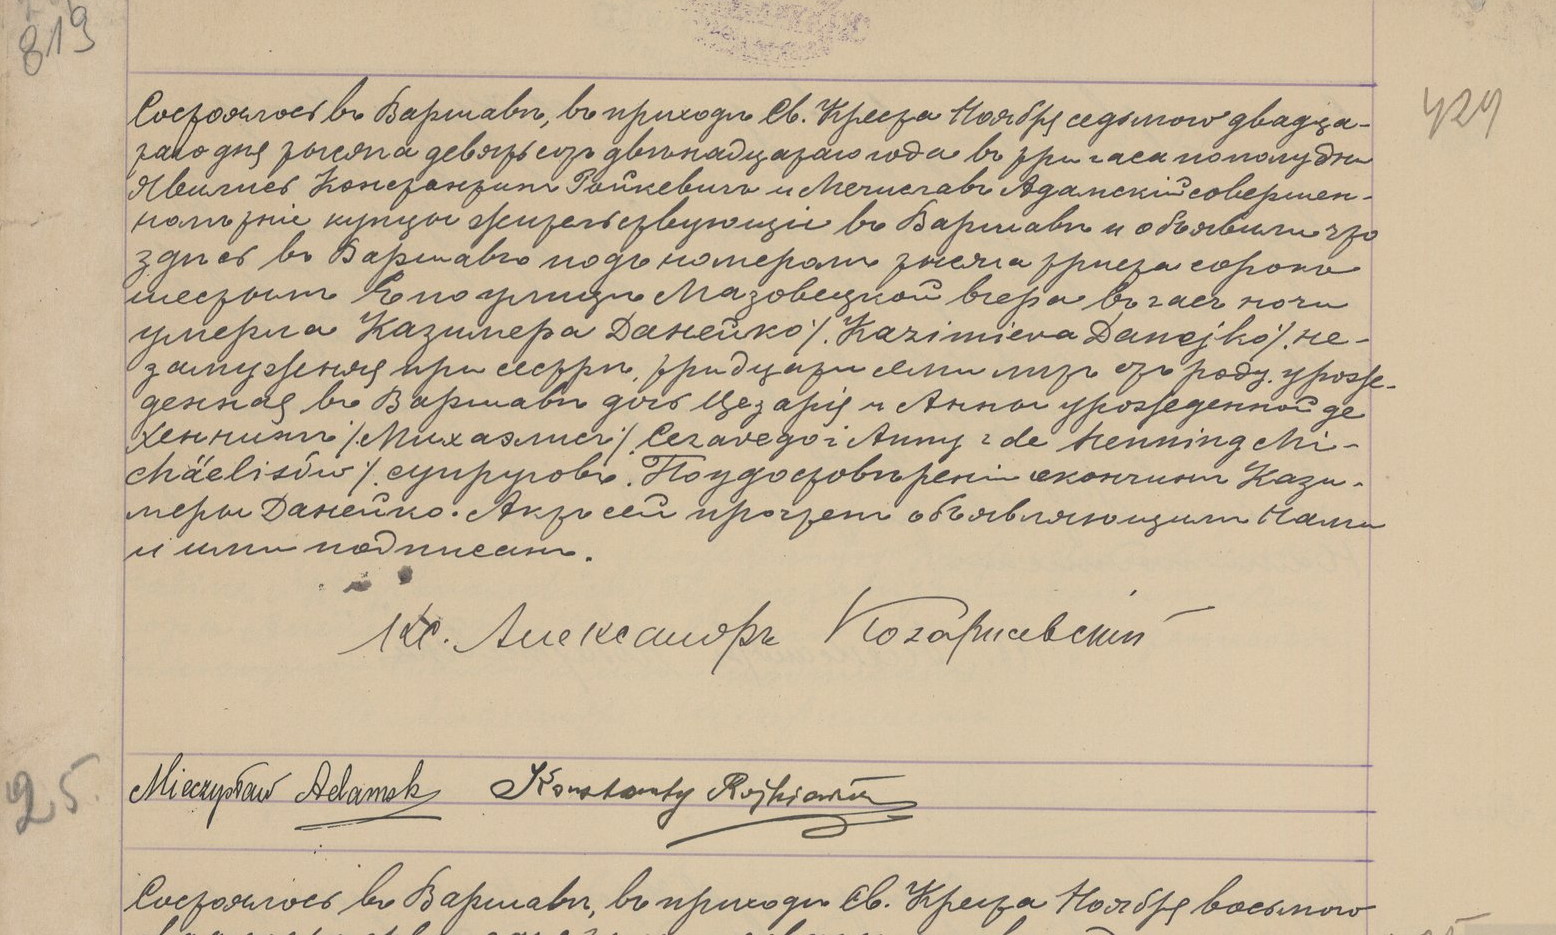 819
429
Состоялось въ Варшавѣ, въ приходѣ Св. Креста Ноября седьмого двадца-
таго дня тысяча девятьсотъ двѣнадцатаго года въ три часа пополудни
Явились Константинъ Ройкевичъ и Мечиславъ Адамскій совершен-
нолѣтніе купцы жительствующіе въ Варшавѣ и объявили что
здѣсь въ Варшавѣ подъ номеромъ тысяча триста сорокъ
шестымъ Е по улицѣ Мазовецкой вчера въ часъ ночи
умерла Казимера Данейко /. Kazimiera Danejko /. не-
замужняя при сестрѣ, тридцати семи лѣтъ отъ роду, урожде-
денная въ Варшавѣ дочь Цезарія и Анны урожденной де
Хеннингъ /. Михаэлисъ /. Cezarego i Anny z de Henning Mi-
chäelisów /. супруговъ. По удостовѣреніи кончины Кази-
меры Данейко. Актъ сей прочтенъ объявляющимъ Нами
и ими подписанъ.
Кс. Александръ
Mieczysław Adamski Konstanty Rojkiewicz
25.
Состоялось въ Варшавѣ, въ приходѣ Св. Креста Ноября восьмого